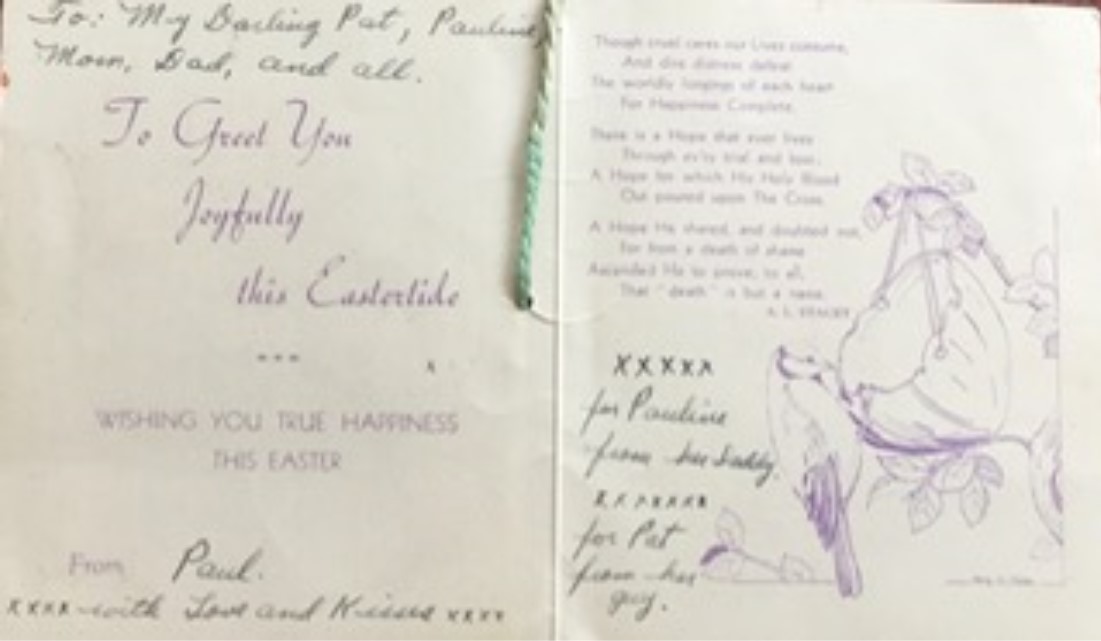 To: My Darling Pat, Pauline,
Mom, Dad, and all.
To Greet You
Joyfully
this Eastertide
---
x
WISHING YOU TRUE HAPPINESS
THIS EASTER
From Paul.
xxxx with Love and Kisses xxxx
Though cruel cares our Lives consume,
And dire distress defeat
The worldly longings of each heart
For Happiness Complete.
There is a Hope that ever lives
Through ev'ry trial and loss;
A Hope for which His Holy Blood
Out poured upon The Cross.
A Hope He shared, and doubted not,
For from a death of shame
Ascended He to prove, to all,
That "death" is but a name.
A. L. STACEY
xxxxx
for Pauline
from her Daddy.
xxxxxxx
for Pat
from her
guy.